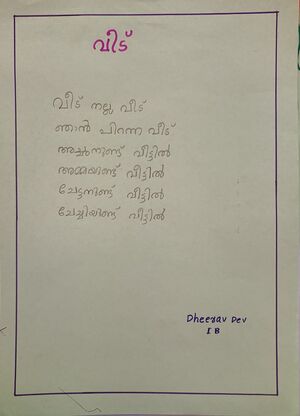 വീട്
വീട് നല്ല വീട്
ഞാൻ പിറന്ന വീട്
അച്ഛനുണ്ട് വീട്ടിൽ
അമ്മയുണ്ട് വീട്ടിൽ
ചേട്ടനുണ്ട് വീട്ടിൽ
ചേച്ചിയുണ്ട് വീട്ടിൽ
Dheerav Dev
I B